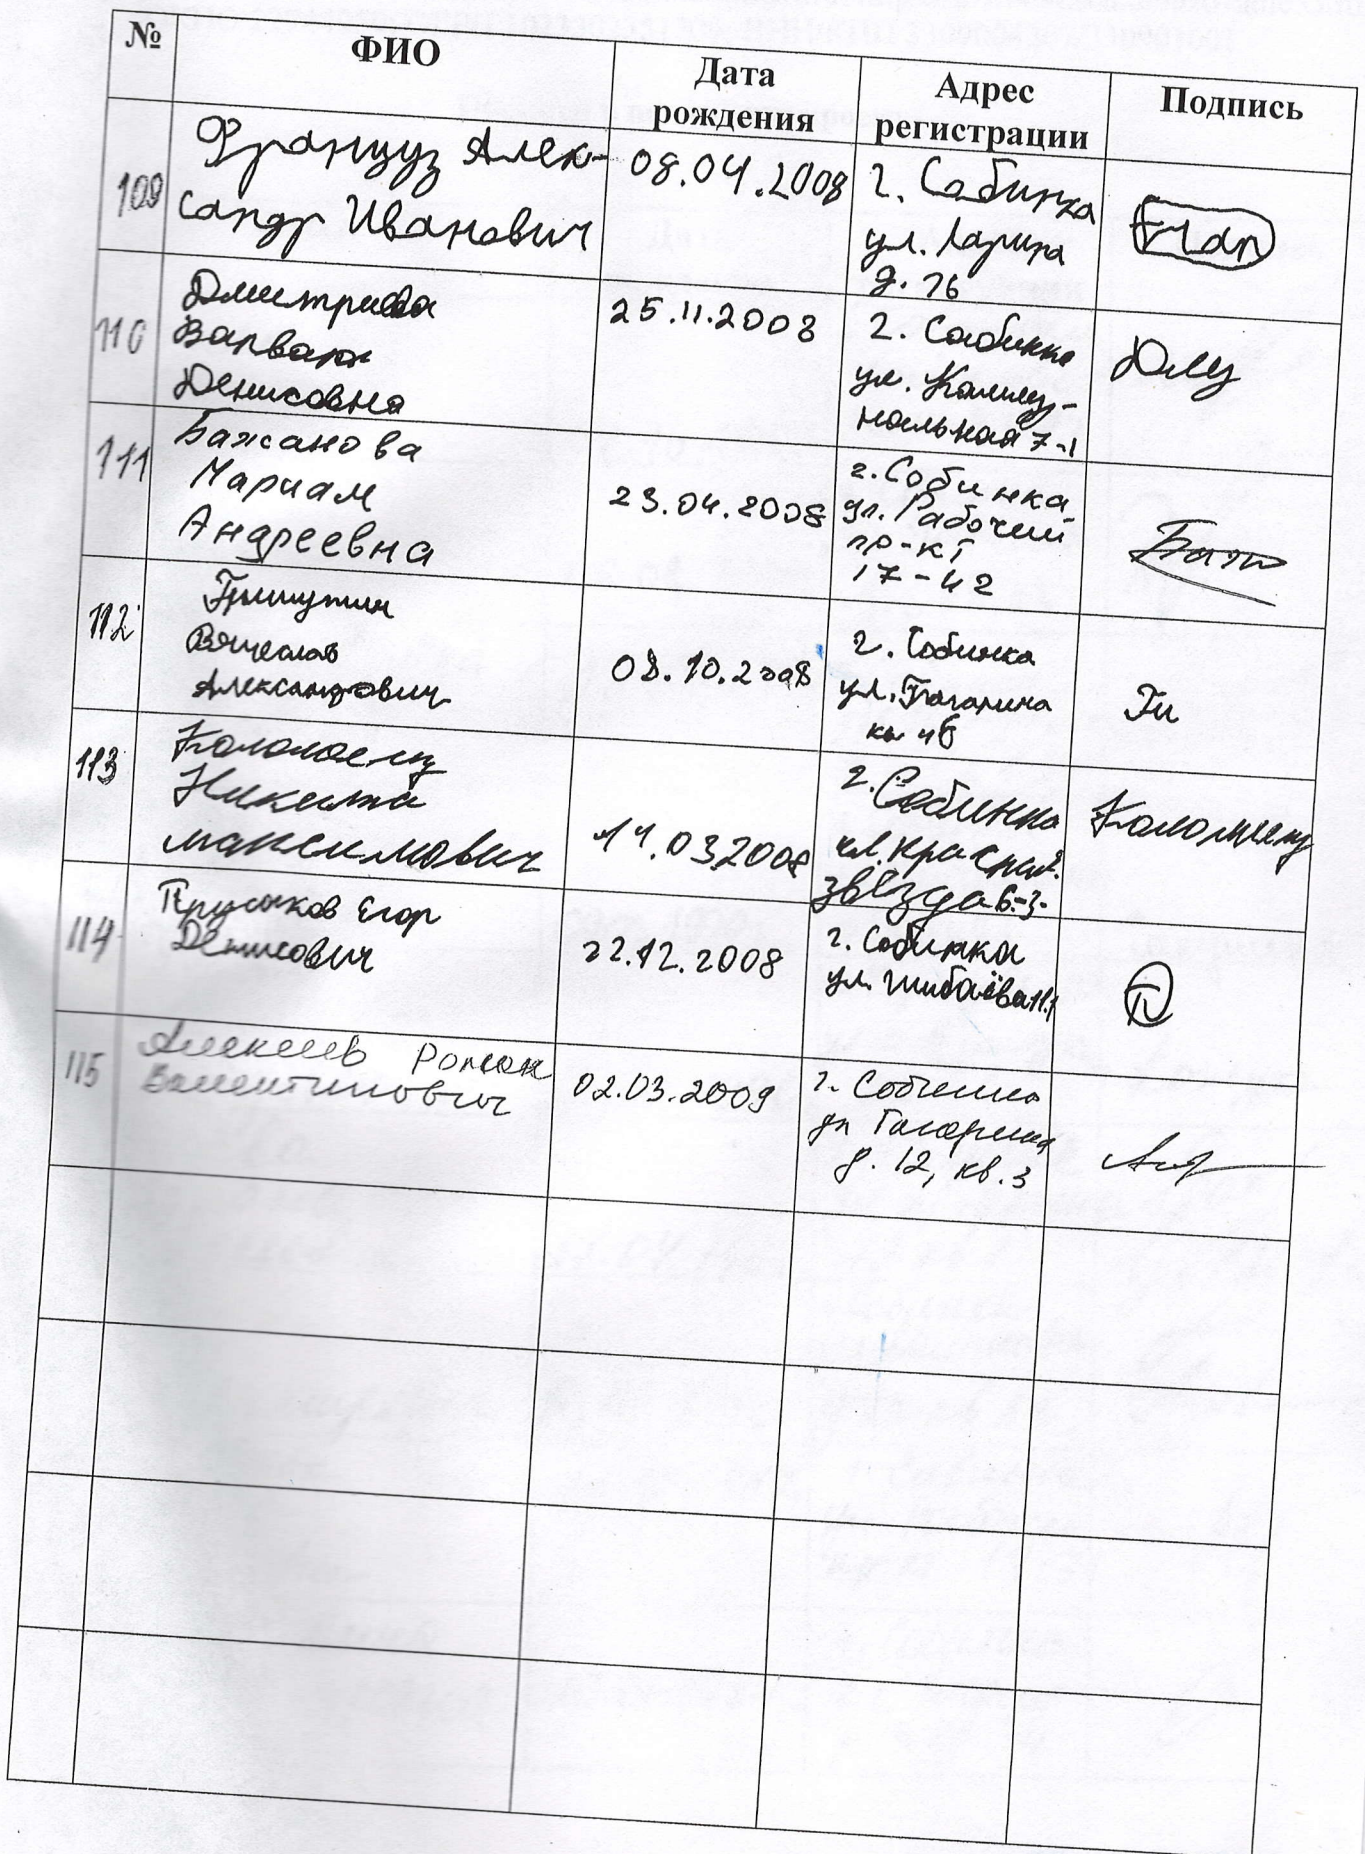 №
ФИО
Дата
рождения
Адрес
регистрации
Подпись
109
Француз Алек-
сандр Иванович
08.04.2008
г. Собинка
ул. Ларина
д. 76
110
Дмитриева
Варвара
Денисовна
25.11.2008
г. Собинка
ул. Коммун-
нальная 7-1
111
Бажанова
Мариам
Андреевна
23.04.2008
г. Собинка
ул. Рабочий
пр-кт
17-42
112
Гришункин
Вячеслав
Александрович
08.10.2008
г. Собинка
ул. Гагарина
кв 46
Ги
113
Коломоец
Никита
Максимович
14.03.2008
г. Собинка
ул. Красная
звезда 6-3
114
Прусаков Егор
Денисович
22.12.2008
г. Собинка
ул. Шибаева
П
115
Алексеев Роман
Валентинович
02.03.2009
г. Собинка
ул Гагарина
д. 12, кв. 3